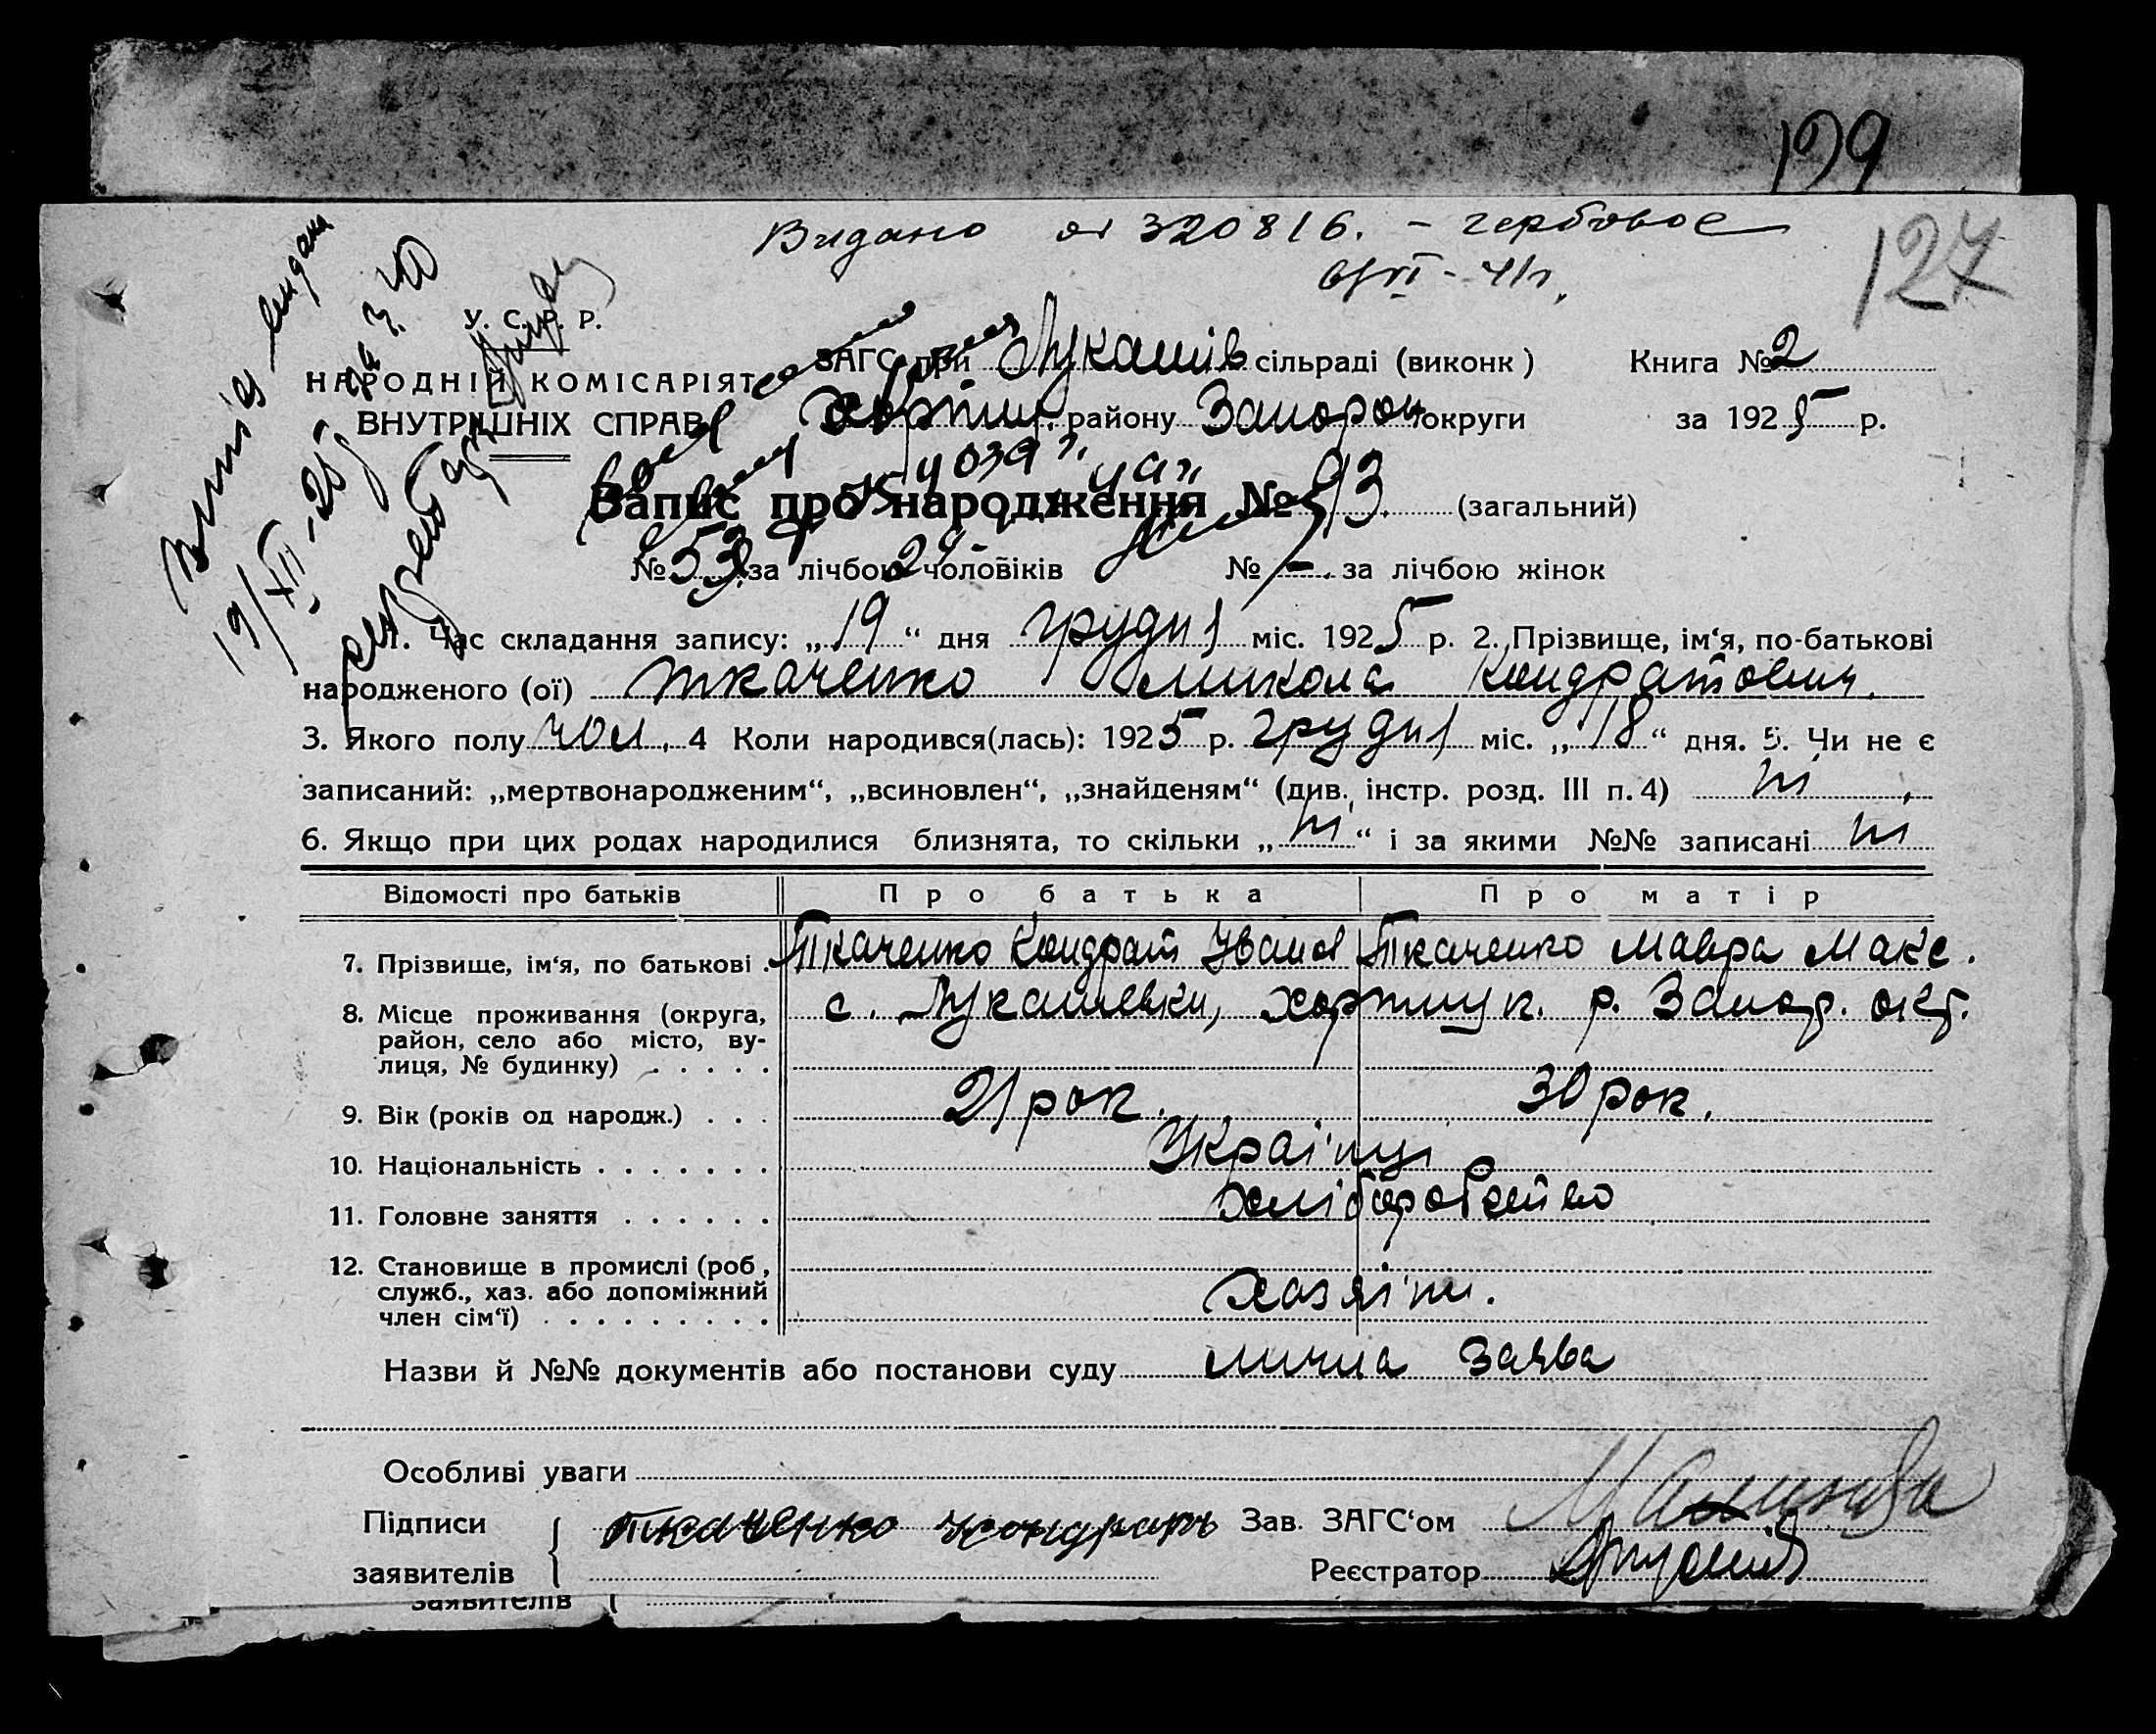 199
Видано 320816. – гербовое
127
У. С. Р. Р.
НАРОДНІЙ КОМІСАРІЯТ
ВНУТРІШНІХ СПРАВ
ЗАГС при Лукашів сільраді (виконк)
Книга № 2
Хортиц. району Запорож округи
за 1925 р.
Запис про народження № 93 (загальний)
№ 53 за лічбою чоловіків № – за лічбою жінок
Витяг видана
19/XII-25
1. Час складання запису: „19“ дня грудня міс. 1925 р. 2. Прізвище, ім‘я, по-батькові
народженого (ої) Ткаченко Микола Кондратович.
3. Якого полу чол. 4 Коли народився(лась): 1925 р. грудня міс. „18“ дня. 5. Чи не є
записаний: „мертвонародженим“, „всиновлен“, „знайденям“ (див. інстр. розд. III п. 4) ні.
6. Якщо при цих родах народилися близнята, то скільки „ні“ і за якими №№ записані ні
Відомості про батьків Про батька Про матір
7. Прізвище, ім‘я, по батькові . Ткаченко Кондрат Іванов Ткаченко Мавра Макс.
8. Місце проживання (округа, с. Лукашевки, р. Запор. окр.
район, село або місто, ву-
лиця, № будинку) . . . . .
9. Вік (років од народж.) . . . 21 рок. 30 рок.
10. Національність . . . . . . . Українці
11. Головне заняття . . . . . . хліборобство
12. Становище в промислі (роб,
служб., хаз. або допоміжний хазяїни.
член сім‘ї) . . . . . . . . .
Назви й №№ документів або постанови суду лична заява
Особливі уваги
Підписи Ткаченко Кондрать Зав. ЗАГС‘ом
заявителів Реєстратор
заявителів